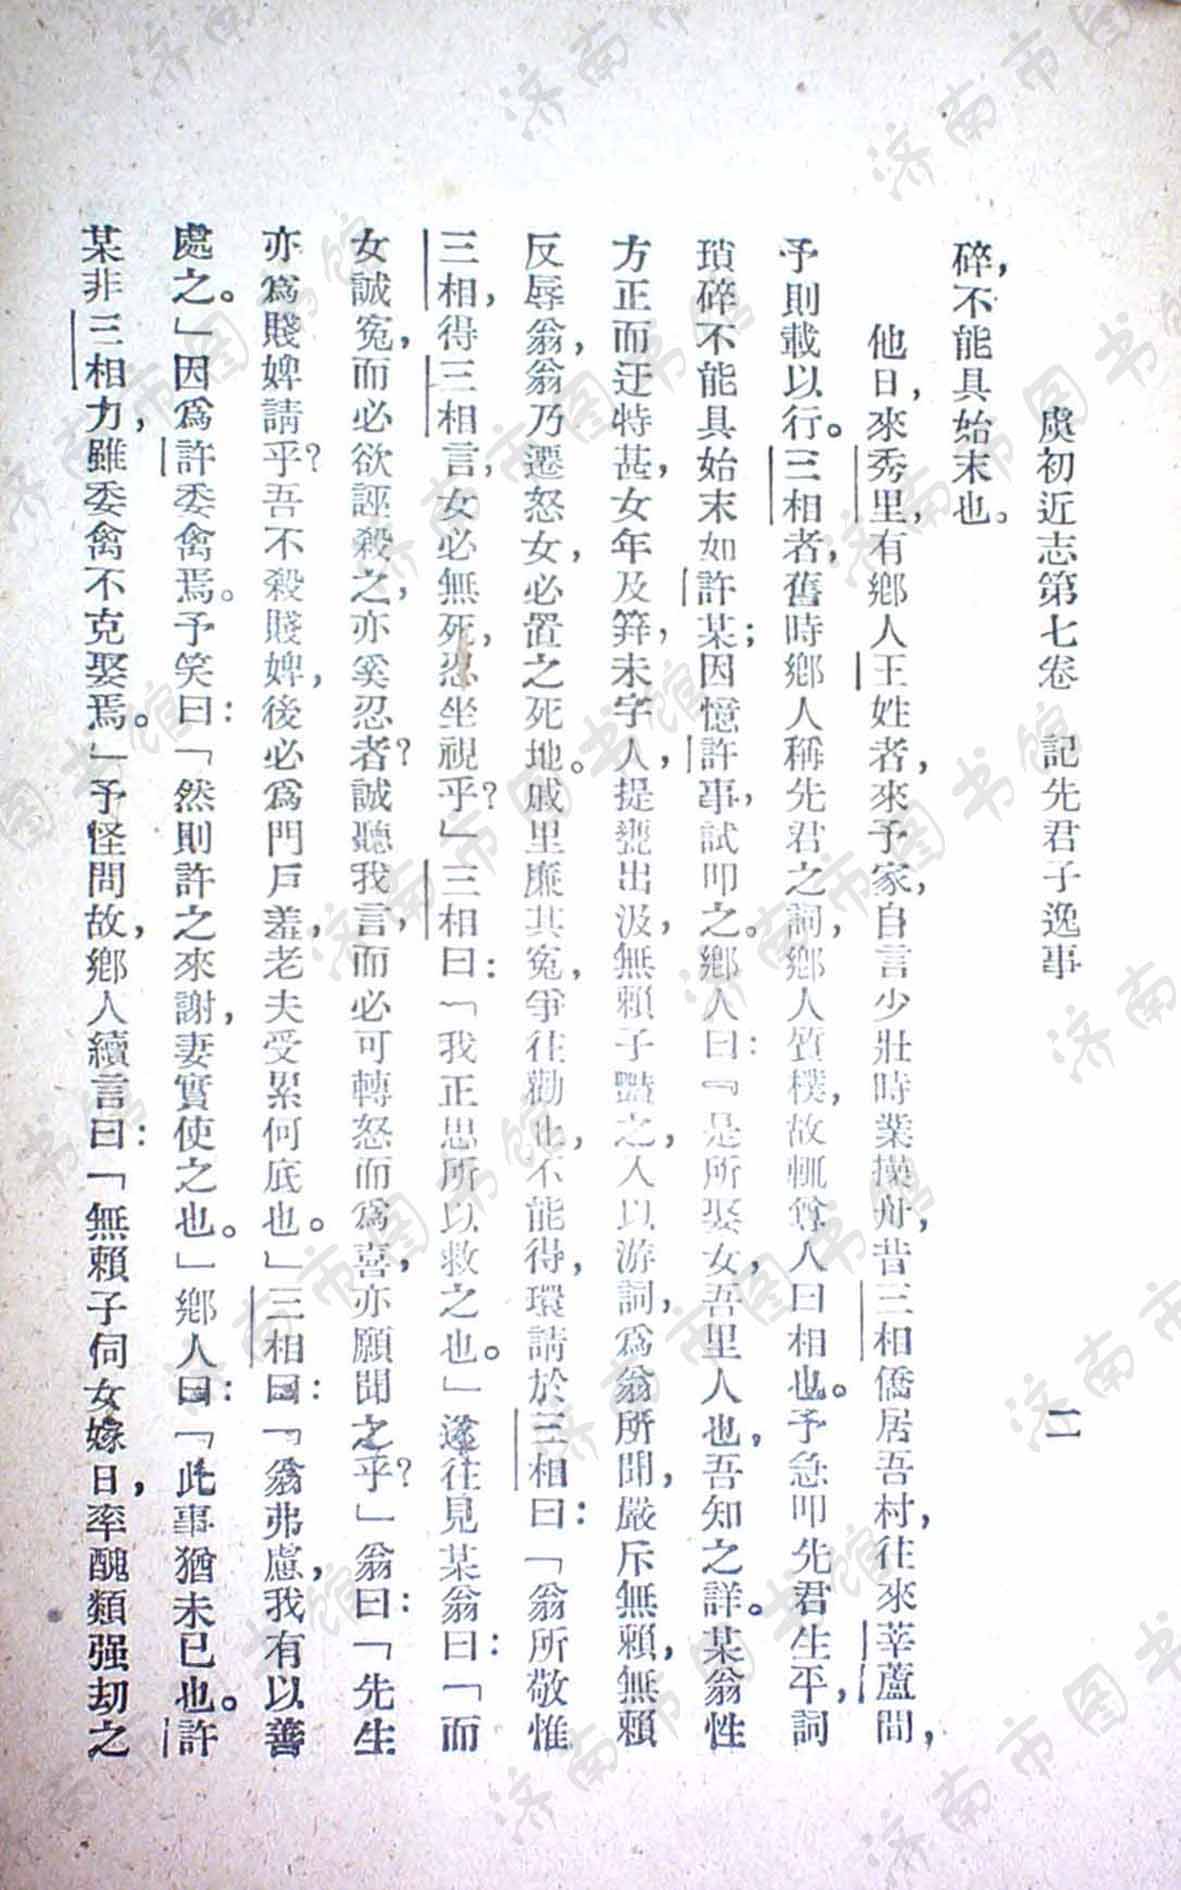 虞初近志第七卷　記先君子逸事　二
碎，不能具始末也。
他日，來秀里，有鄉人王姓者，來予家，自言少壯時業操舟，昔三相僑居吾村，往來莘蘆間，
予則載以行。三相者，舊時鄉人稱先君之詞，鄉人質樸，故輒尊人曰相也。予急叩先君生平，詞
瑣碎不能具始末如許某；因憶許事，試叩之。鄉人曰：『是所娶女，吾里人也，吾知之詳。某翁性
方正而迂特甚，女年及笄，未字人，提甕出汲，無賴子豔之，人以游詞，爲翁所聞，嚴斥無賴，無賴
反辱翁，翁乃遷怒女，必置之死地。戚里廉其冤，爭往勸止，不能得，環請於三相曰：「翁所敬惟
三相，得三相言，女必無死，忍坐視乎？」三相曰：「我正思所以救之也。」遂往見某翁曰：「而
女誠冤，而必欲誣殺之，亦奚忍者？誠聽我言，而必可轉怒而爲喜，亦願聞之乎？」翁曰：「先生
亦爲賤婢請乎？吾不殺賤婢，後必爲門戶羞，老夫受累何底也。」三相曰：「翁弗慮，我有以善
處之。」因爲許委禽焉。予笑曰：「然則許之來謝，妻實使之也。」鄉人曰：「此事猶未已也。許
某非三相力，雖委禽不克娶焉。」予怪問故，鄉人續言曰：「無賴子伺女嫁日，率醜類强劫之
济南市图书馆